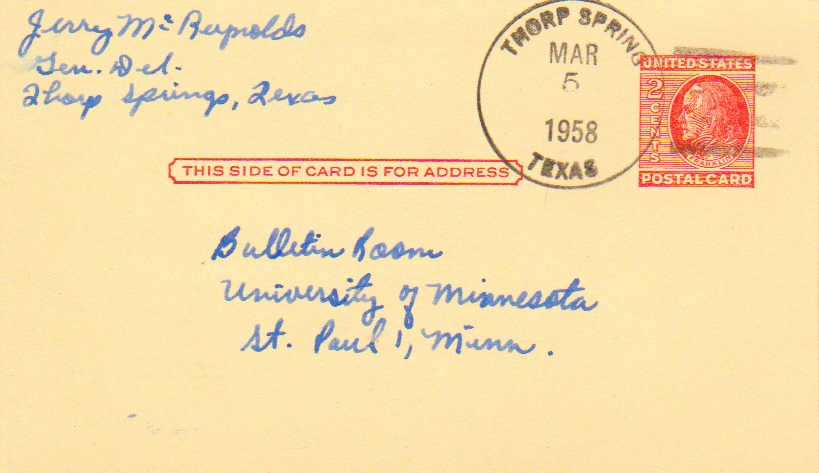 Jerry Mc Reynolds
Gen. Del.
Thorp Springs, Texas
THORP SPRING
MAR
5
1958
TEXAS
UNITED STATES
2 CENTS
FRANKLIN
POSTAL CARD
THIS SIDE OF CARD IS FOR ADDRESS
Bulletin Room
University of Minnesota
St. Paul 1, Minn.